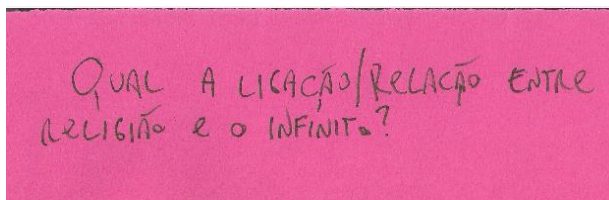 QUAL A LIGAÇÃO/RELAÇÃO ENTRE
RELIGIÃO E O INFINITO?